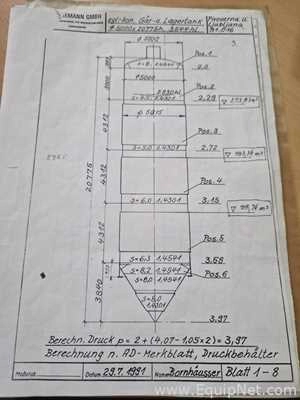 ZIEMANN GMBH
zyl.-kon. Gär- u. Lagertank
Pivovarna u.
Ljubljana
ϕ 5000
Pos. 1
s=8, 1.4301
2,0
ϕ 5000
Pos. 2
2,29
4312
ϕ 5015
Pos. 3
s=5,0 1.4301
2,72
20775
4312
Pos. 4
s=6,0 1.4301
3,15
4312
Pos. 5
s=6,3 1.4541
3,58
s=8,2 1.4541
Pos. 6
s=8,0 1.4541
3840
s=8,0
1.4301
3,97
Berechn. Druck p = 2 + (4,07 - 1,05x2) = 3,97
Berechnung n. AD-Merkblatt, Druckbehälter
Maßstab
Datum 29.7.1991
Name Bornhäusser
Blatt 1-8
EquipNet.com